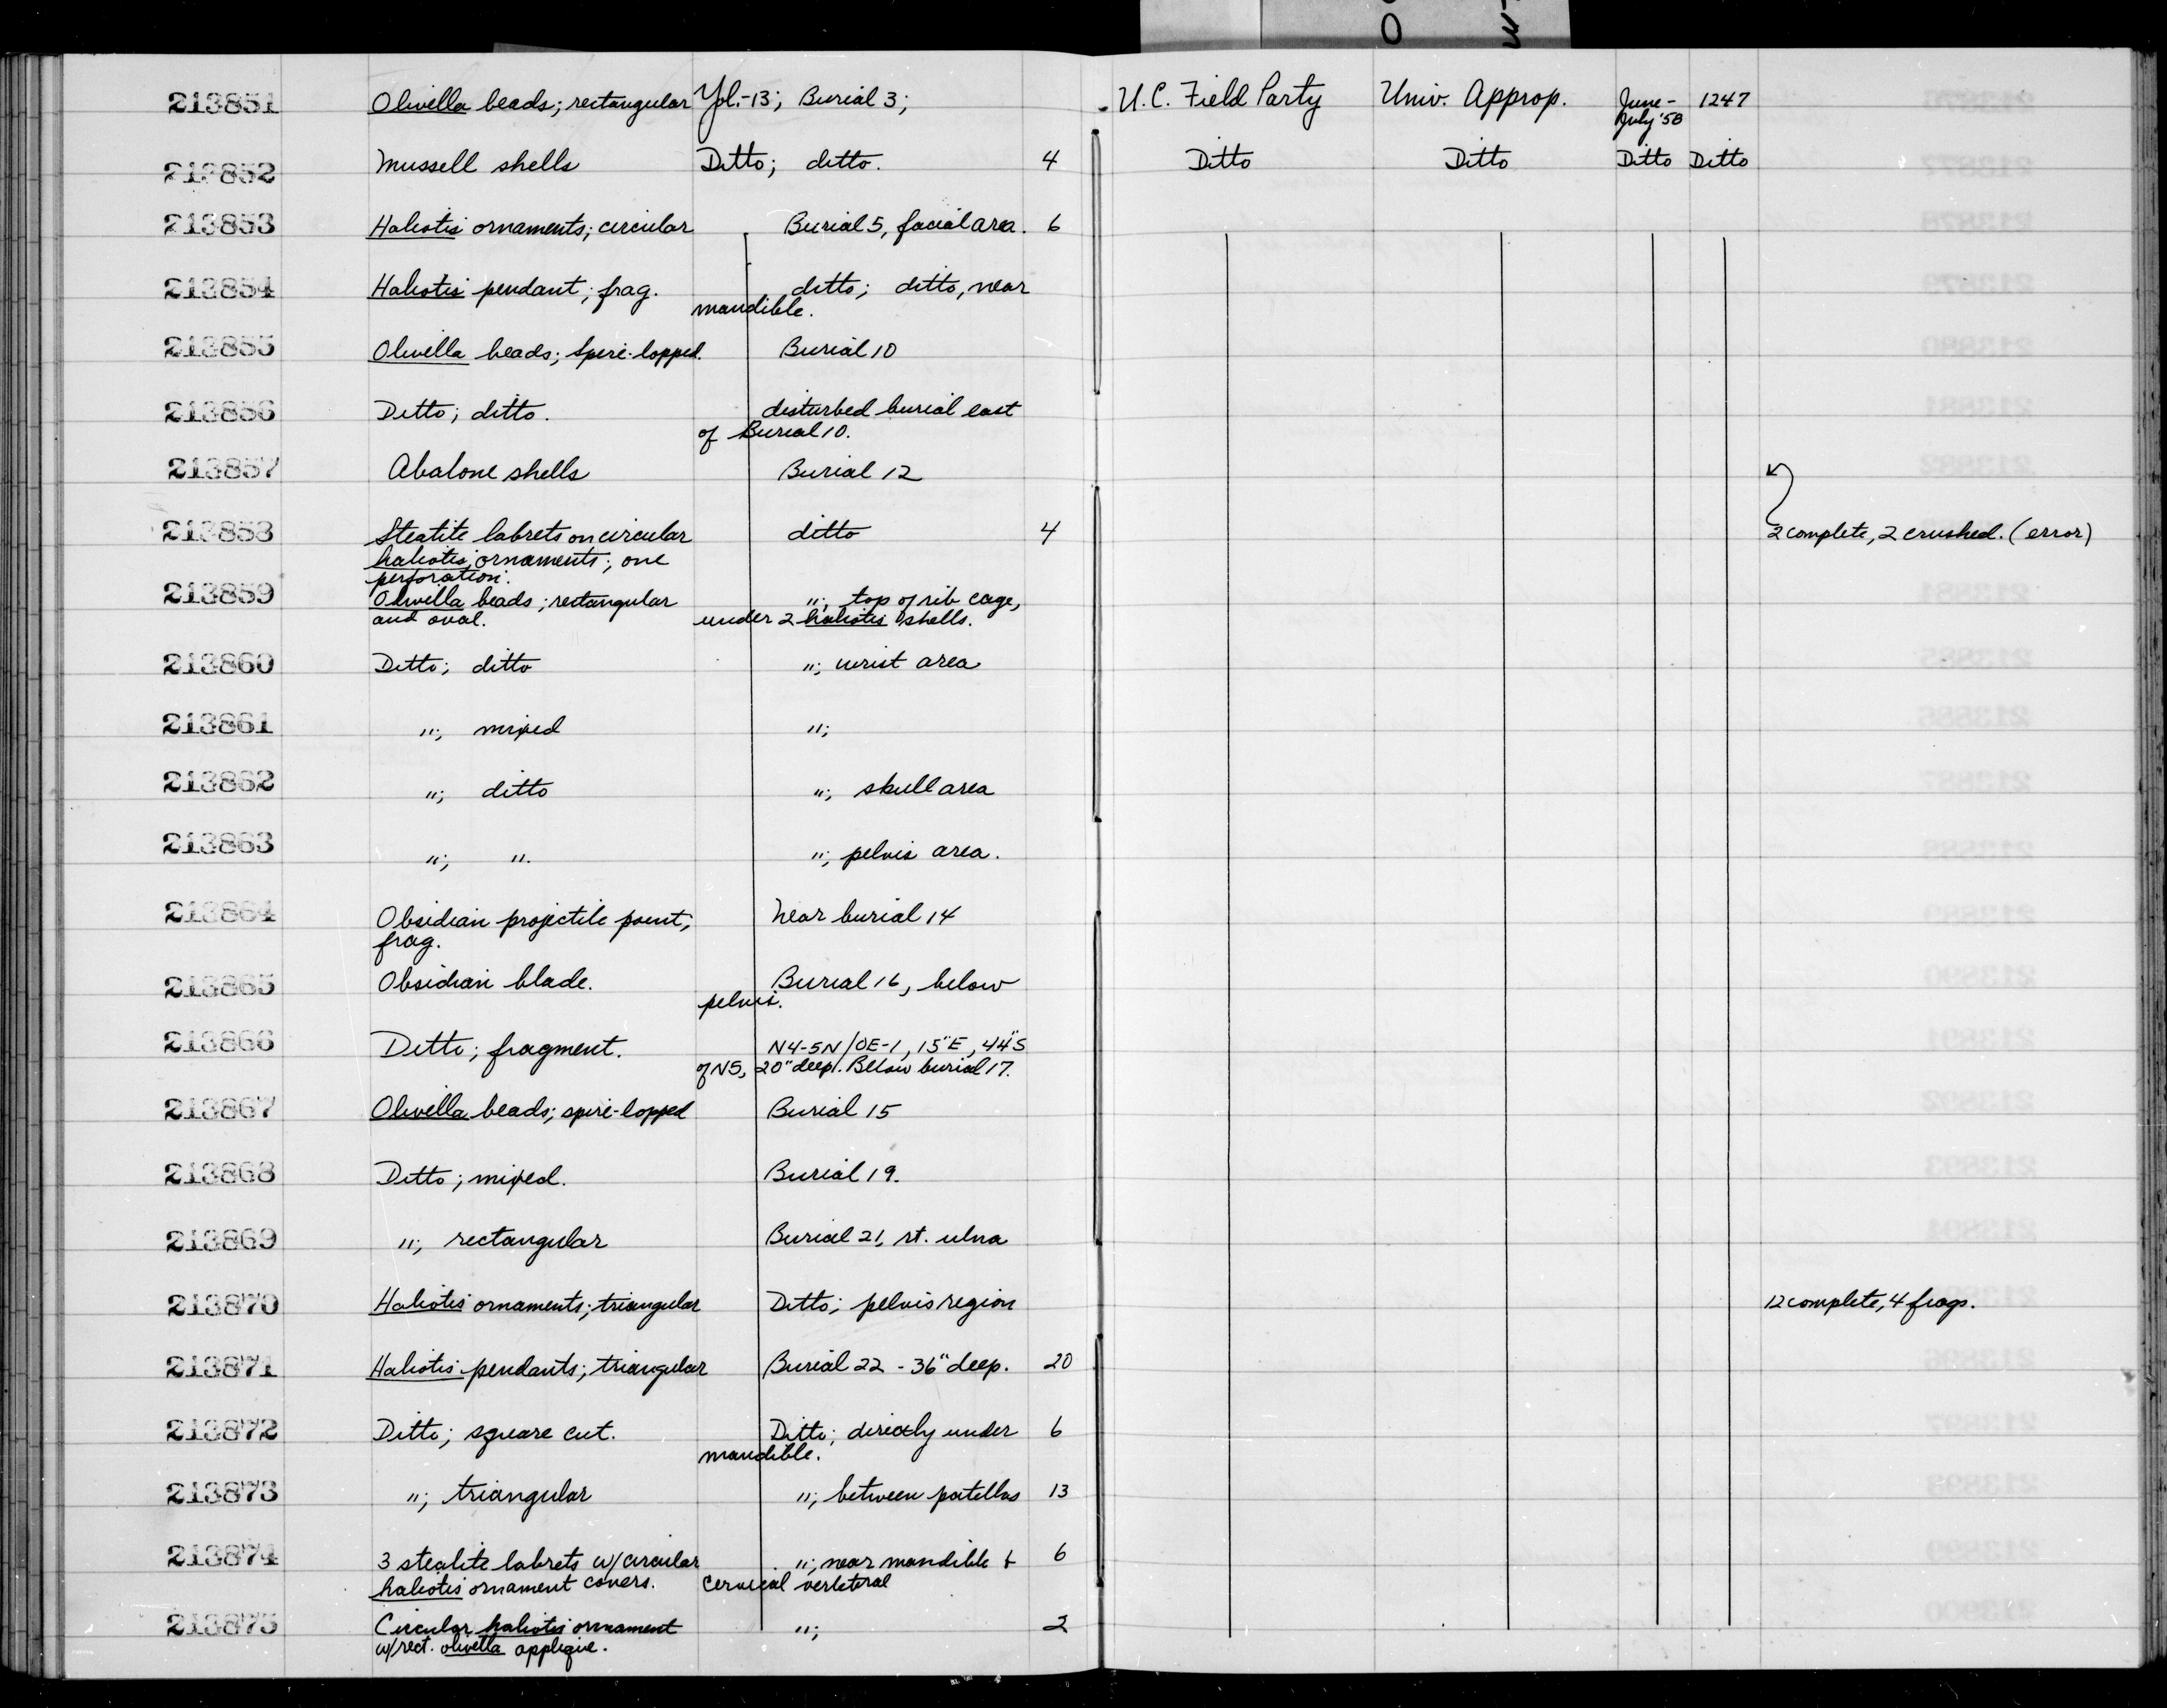 213851 Olivella beads; rectangular Yol.-13; Burial 3; U.C. Field Party Univ. Approp. June- 1247
July '58
213852 Mussell shells Ditto; ditto. 4 Ditto Ditto Ditto Ditto
213853 Haliotis ornaments; circular Burial 5, facial area. 6
213854 Haliotis pendant; frag. ditto; ditto, near
mandible.
213855 Olivella beads; spire-lopped. Burial 10
213856 Ditto; ditto. disturbed burial east
of Burial 10.
213857 Abalone shells Burial 12
213858 Steatite labrets on circular ditto 4 2 complete, 2 crushed. (error)
haliotis ornaments; one
perforation.
213859 Olivella beads; rectangular "; top of rib cage,
and oval. under 2 haliotis shells.
213860 Ditto; ditto "; wrist area
213861 "; mixed ";
213862 "; ditto "; skull area
213863 "; ". "; pelvis area.
213864 Obsidian projectile point; Near burial 14
frag.
213865 Obsidian blade. Burial 16, below
pelvis.
213866 Ditto; fragment. N4-5N/0E-1, 15"E, 44"S
of N5, 20" deep. Below burial 17.
213867 Olivella beads; spire-lopped Burial 15
213868 Ditto; mixed. Burial 19.
213869 "; rectangular Burial 21, rt. ulna
213870 Haliotis ornaments; triangular Ditto; pelvis region 12 complete, 4 frags.
213871 Haliotis pendants; triangular Burial 22 - 36" deep. 20
213872 Ditto; square cut. Ditto; directly under 6
mandible.
213873 "; triangular "; between patellas 13
213874 3 steatite labrets w/circular "; near mandible & 6
haliotis ornament covers. cervical verteteral
213875 Circular haliotis ornament "; 2
w/rect. olivella applique.